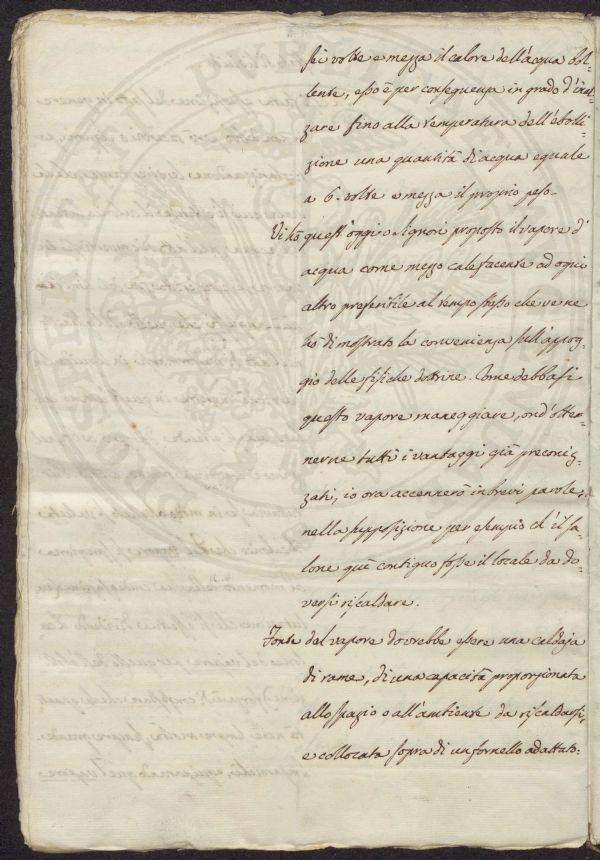 sei volte e mezza il calore dell'acqua bol-
lente, esso è per conseguenza in grado d'inal-
zare fino alla temperatura dell'ebolli-
zione una quantità di acqua equale
a 6. volte e mezza il proprio peso.
Vi hò quest'oggi o Signori proposto il vapore d'
acqua come mezzo calefacente ad ogni
altro preferibile al tempo stesso che ve ne
hò dimostrato la convenienza sull'appog-
gio delle fisiche dottrine. Come debbasi
questo vapore maneggiare, ond'otte-
nerne tutti i vantaggi già preconiz-
zati, io ora accennerò in brevi parole,
nella supposizione per esempio ch'il sa-
lone quì contiguo fosse il locale da do-
versi riscaldare.
Fonte del vapore dovrebbe essere una caldaja
di rame, di una capacità proporzionata
allo spazio o all'ambiente da riscaldarsi,
e collocata sopra di un fornello adattato.